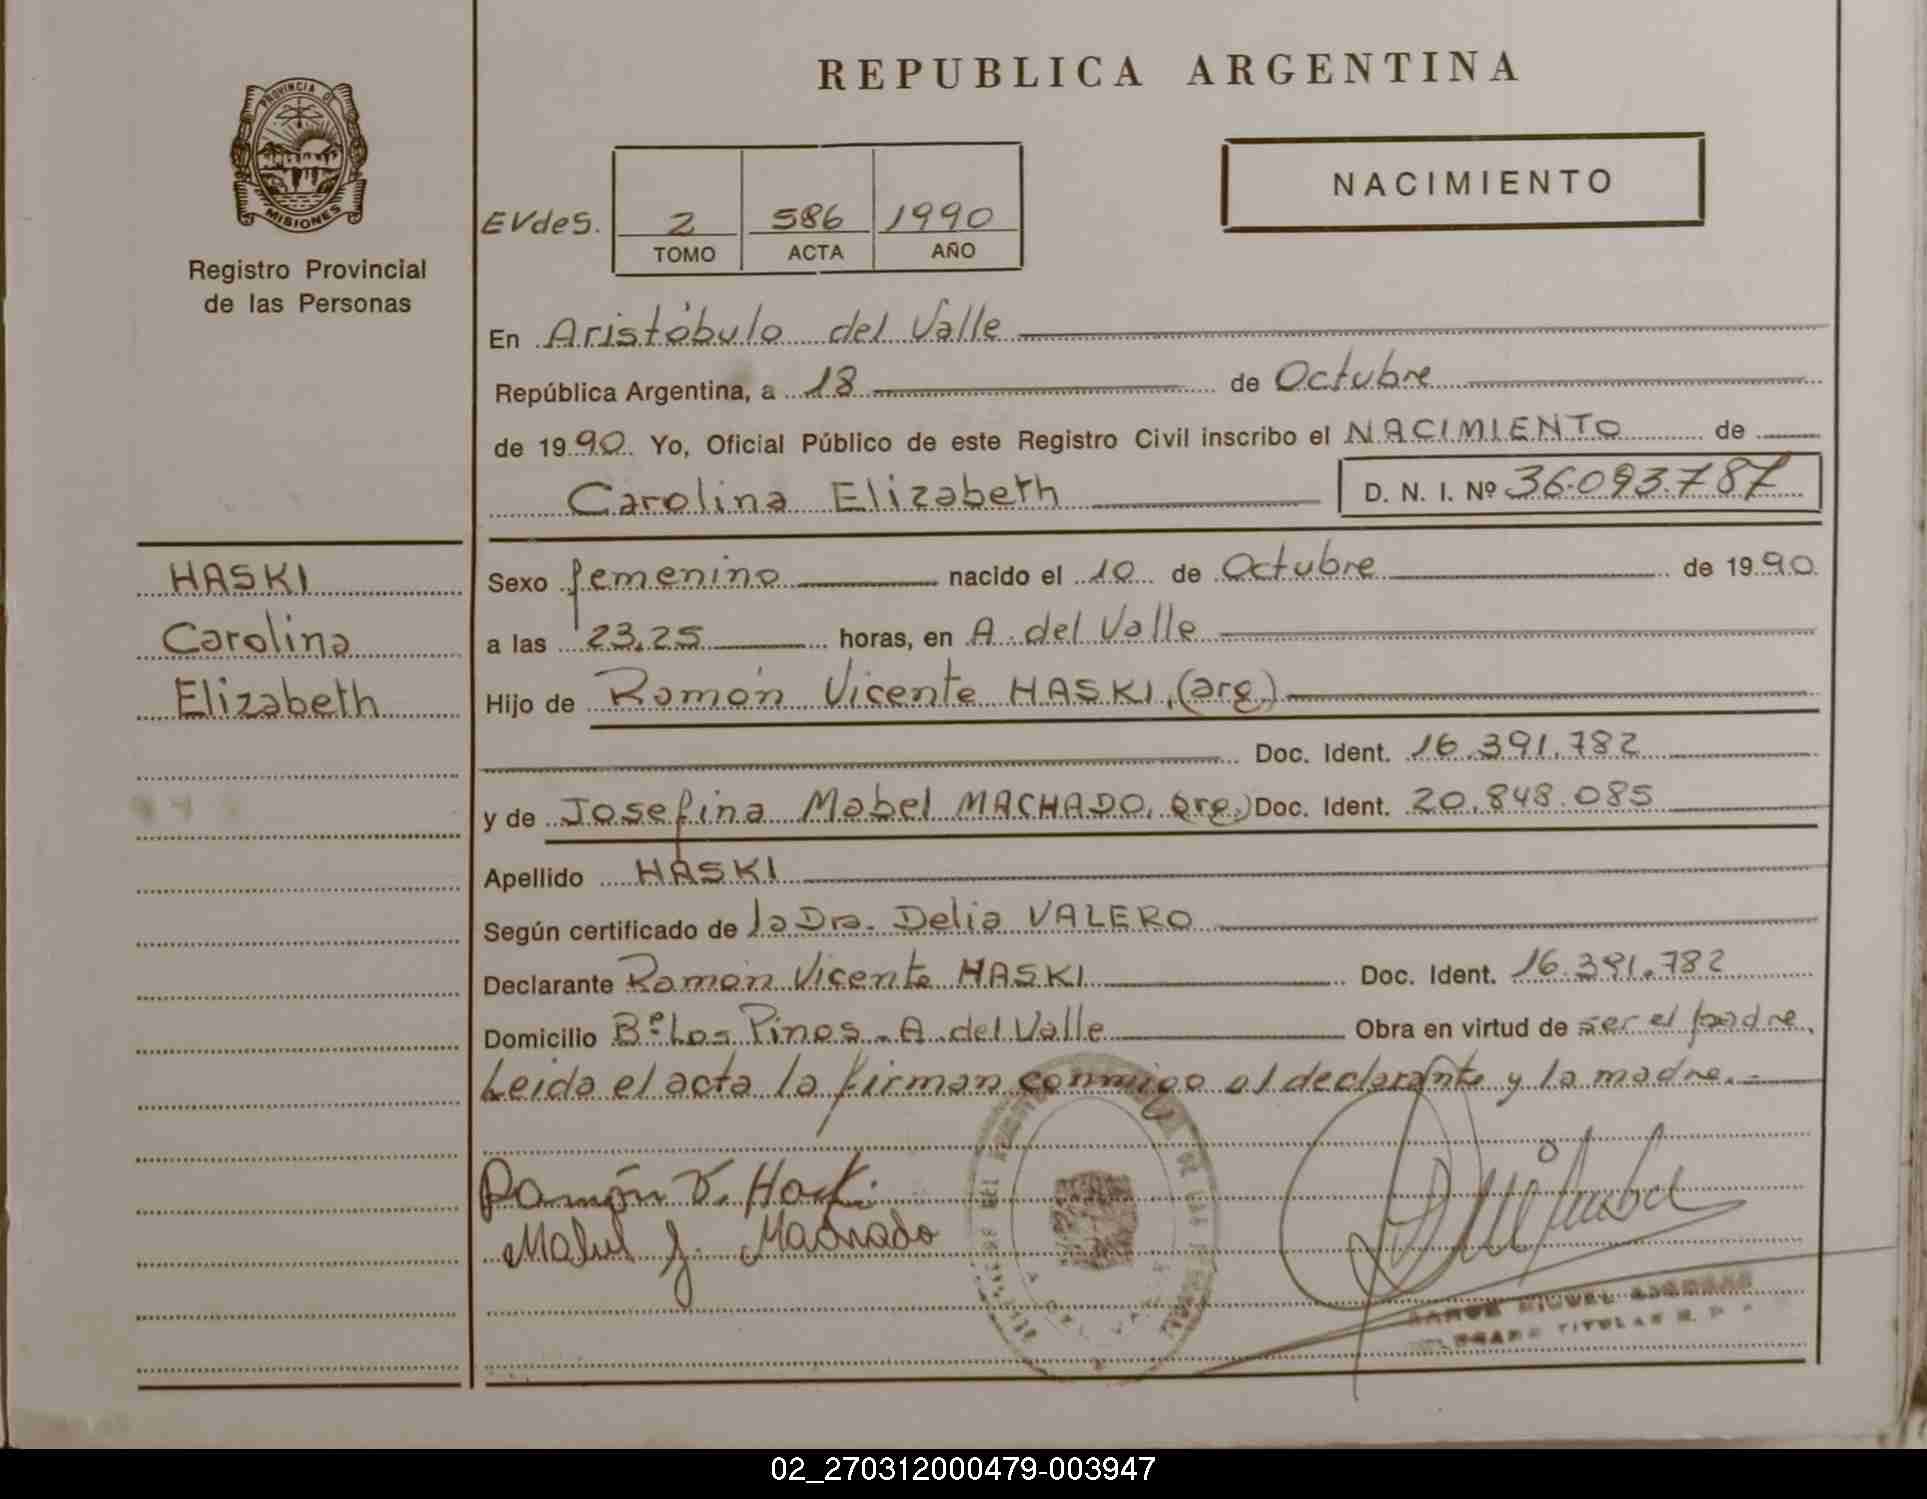 REPUBLICA ARGENTINA
PROVINCIA DE
MISIONES
Registro Provincial
de las Personas
NACIMIENTO
EVdeS. 2 586 1990
TOMO ACTA AÑO
En Aristóbulo del Valle
República Argentina, a 18 de Octubre
de 1990. Yo, Oficial Público de este Registro Civil inscribo el NACIMIENTO de
Carolina Elizabeth D. N. I. Nº 36.093.787
HASKI
Carolina
Elizabeth
Sexo femenino nacido el 10 de Octubre de 1990
a las 23,25 horas, en A. del Valle
Hijo de Ramón Vicente HASKI, (arg.)
Doc. Ident. 16.391.782
y de Josefina Mabel MACHADO, (arg.) Doc. Ident. 20.848.085
Apellido HASKI
Según certificado de la Dra. Delia VALERO
Declarante Ramón Vicente HASKI Doc. Ident. 16.391.782
Domicilio Bº Los Pinos - A. del Valle Obra en virtud de ser el padre.
Leida el acta la firman conmigo el declarante y la madre.-
Ramón V. Haski
Mabel J. Machado
RAMON MIGUEL
DELEGADO TITULAR R. P.
02_270312000479-003947